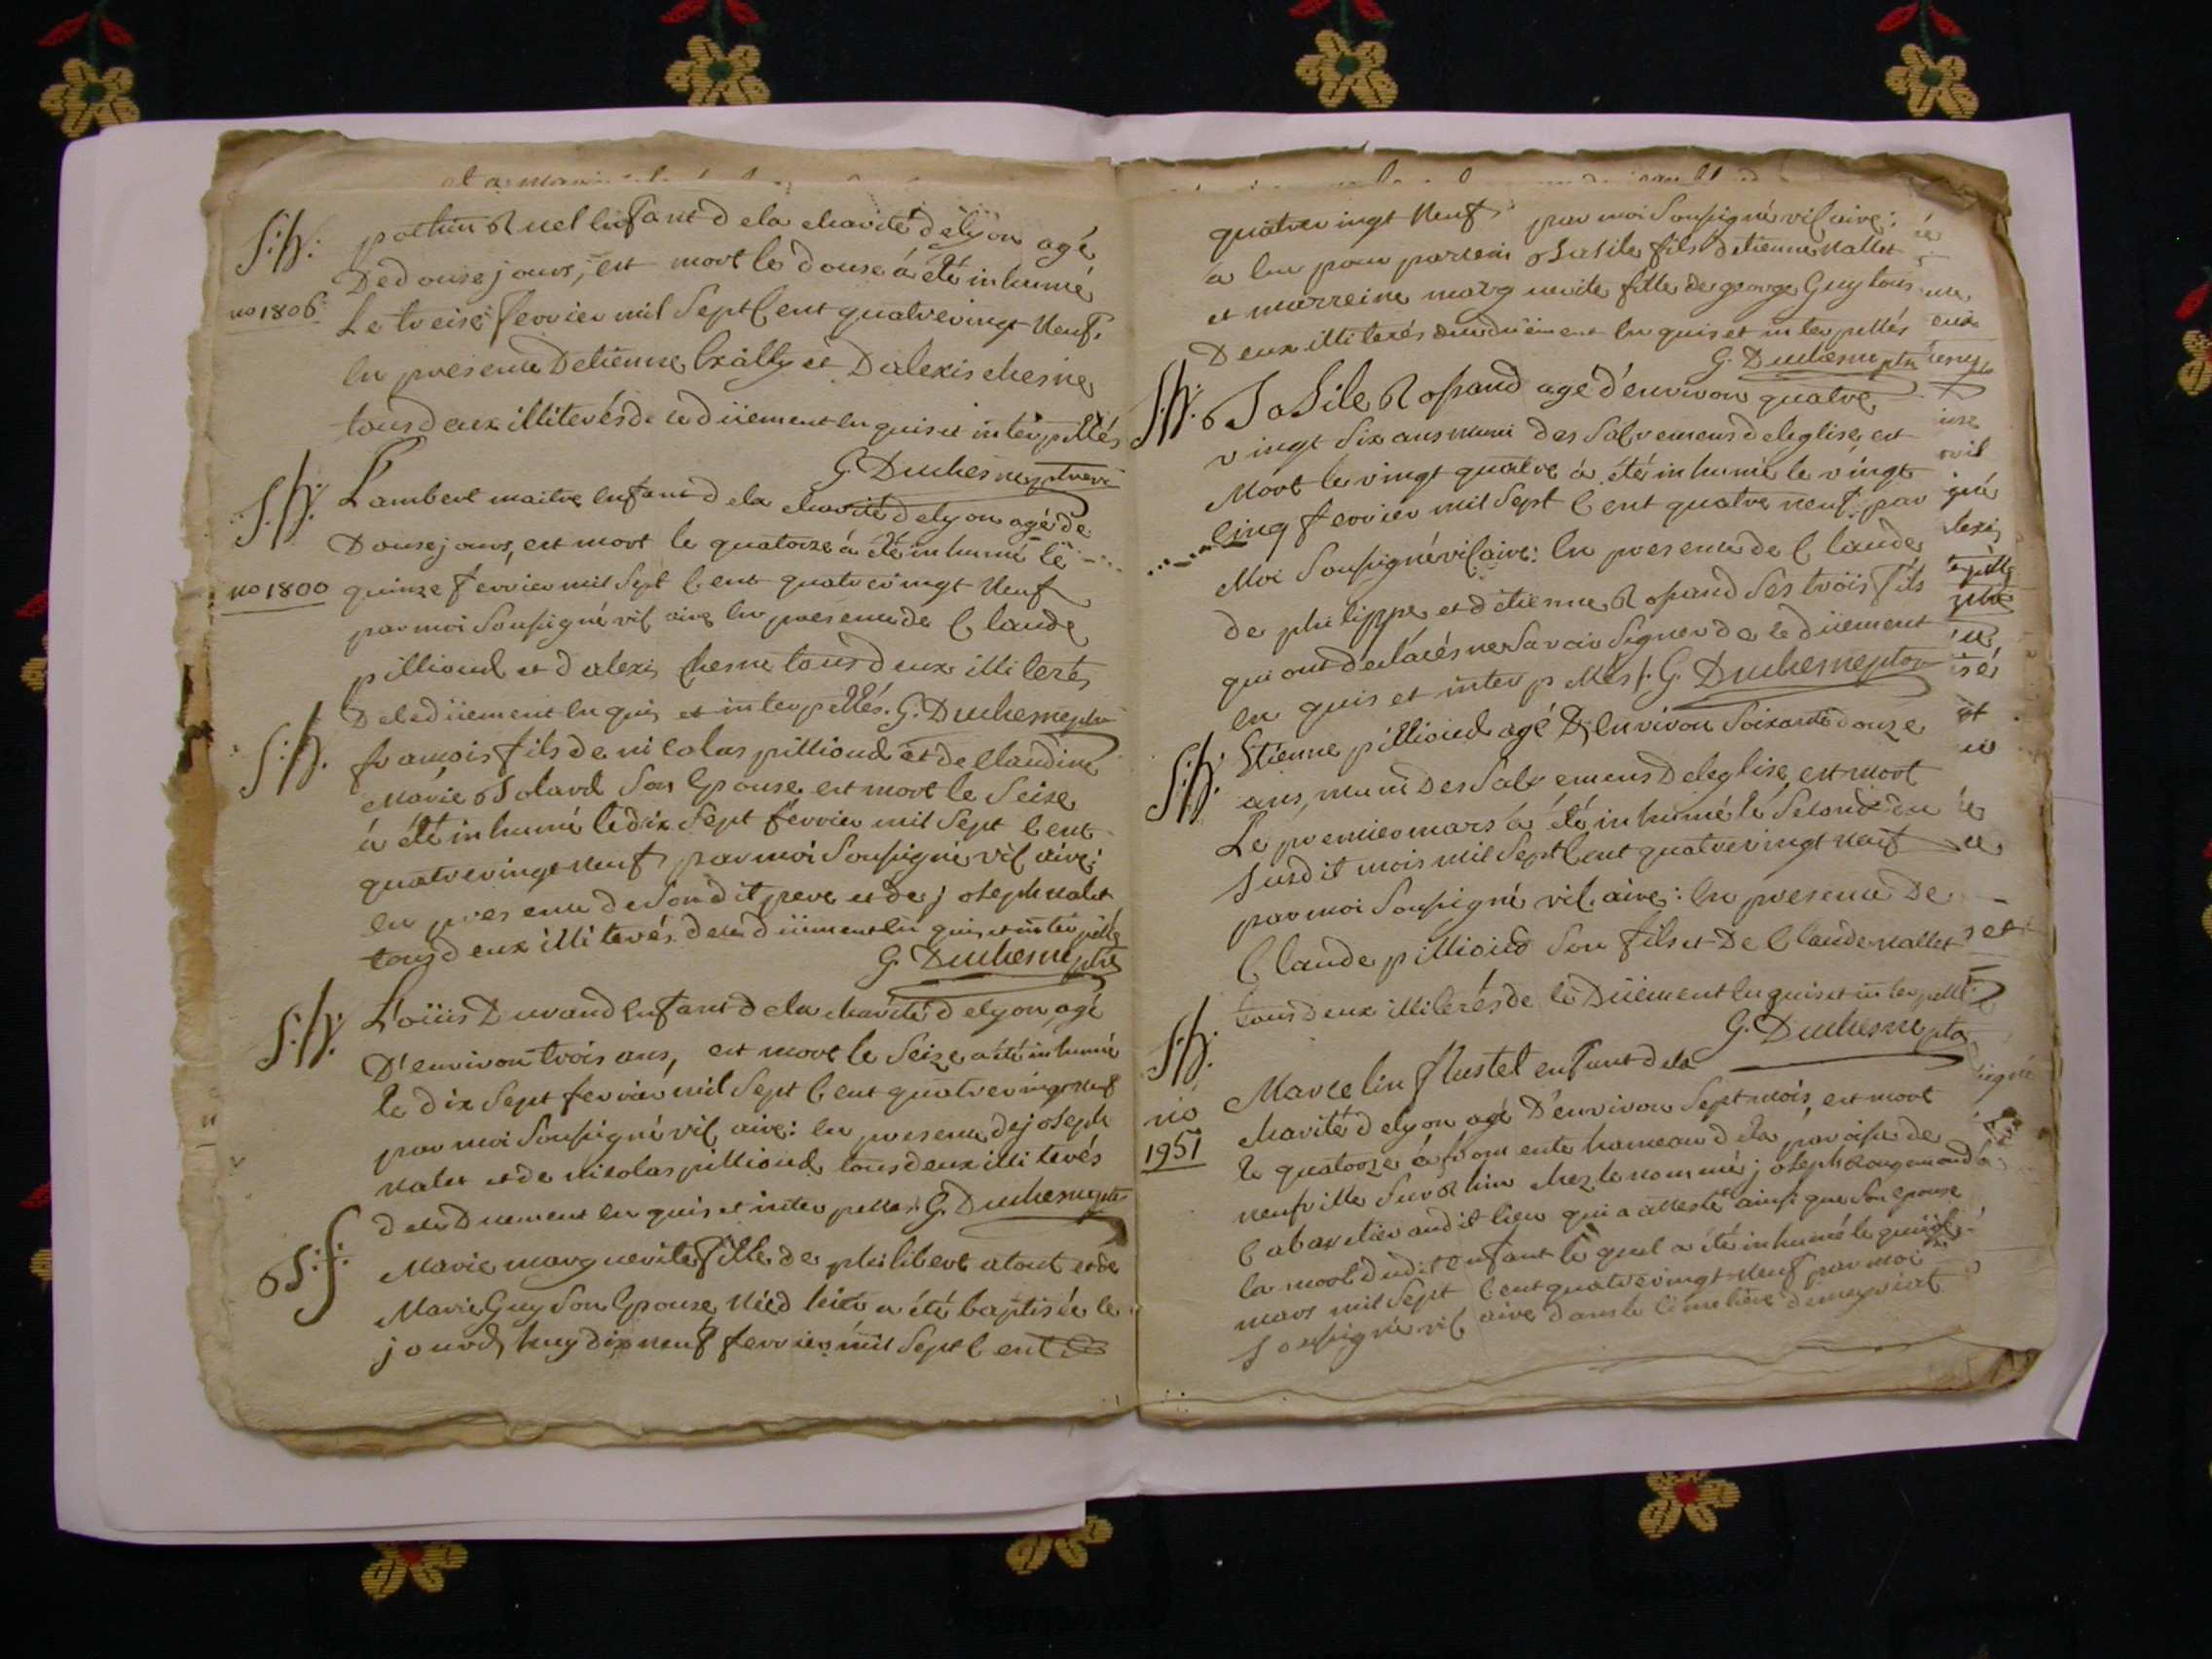 S: H: pothin Ruel Enfant de la charité de lyon agé
De douse jours, est mort le douse à été inhumé
no 1806 Le treise fevrier mil Sept Cent quatrevingt Neuf,
En presence D'etienne et D'alexis chesne
tous deux illiterés de ce düement Enquis et interpellés
G. Duchesne ptre
S: H: Lambert maitre Enfant de la charité de lyon agé de
Douse jours, est mort le quatorze à été inhumé le
no 1800 quinze fevrier mil Sept Cent quatrevingt Neuf
par moi Soussigné vicaire En presence de Claude
pillioud et d'alexis Chesne tous deux illiterés
De ce düement Enquis et interpellés. G. Duchesne ptre
S: H. françois fils de nicolas pillioud et de Claudine
Marie Bolard Son Epouse est mort le Seise
à été inhumé le dix Sept fevrier mil Sept Cent
quatrevingt neuf par moi Soussigné vicaire:
En presence de Son dit pere et de joseph valet
tous deux illiterés de ce düement En quis et interpellés
G. Duchesne ptre
S: H: Loüis Durand Enfant de la charité de lyon, agé
D'environ trois ans, est mort le Seize a été inhumé
le dix Sept fevrier mil Sept Cent quatrevingt neuf
par moi Soussigné vicaire: En presence de joseph
valet et de nicolas pillioud tous deux illiterés
de ce Duement Enquis et interpellés. G. Duchesne ptre
B: f: Marie marguerite fille de philibert et de
Marie Guy Son Epouse Née d hier a été baptisée ce
jourd'huy dix neuf fevrier mil Sept Cent
quatrevingt Neuf par moi Soussigné vicaire:
a Eu pour parrein Basile fils d'etienne vallet
et marreine marguerite fille de george Guy tous
Deux illiterés de ce düement Enquis et interpellés
G. Duchesne ptre
S: H: Basile Rossand agé d'environ quatre
vingt Six ans muni des Sacremens de leglise est
Mort le vingt quatre à été inhumé le vingt
Cinq fevrier mil Sept Cent quatre neuf par
Moi Soussigné vicaire: En presence de Claude
de philippe et d'etienne Rossand Ses trois fils
qui ont declarés ne Savoir Signer de ce düement
enquis et interpellés. G. Duchesne ptre
S: H: Etienne pillioud agé D'environ Soixante douze
ans, muni Des Sacremens De leglise, est mort
Le premier mars à été inhumé le Second du
Susdit mois mil Sept Cent quatrevingt neuf
par moi Soussigné vicaire: En presence De
Claude pillioud Son fils et De Claude vallet
tous deux illiterés de ce Düement Enquis et interpellés
G. Duchesne ptre
S: H: Marcelin flustel enfant de la
no charité de lyon agé D'environ Sept mois, est mort
1951 le quatorze à hameau de la paroisse de
neufville Sur chez le nommé joseph Rougemond
Cabaretier audit lieu qui a attesté ainsi que Son epouse
la mort dudit Enfant le quel a été inhumé le quinze
mars mil Sept Cent quatrevingt neuf par moi
Soussigné vicaire dans le Cimetière de